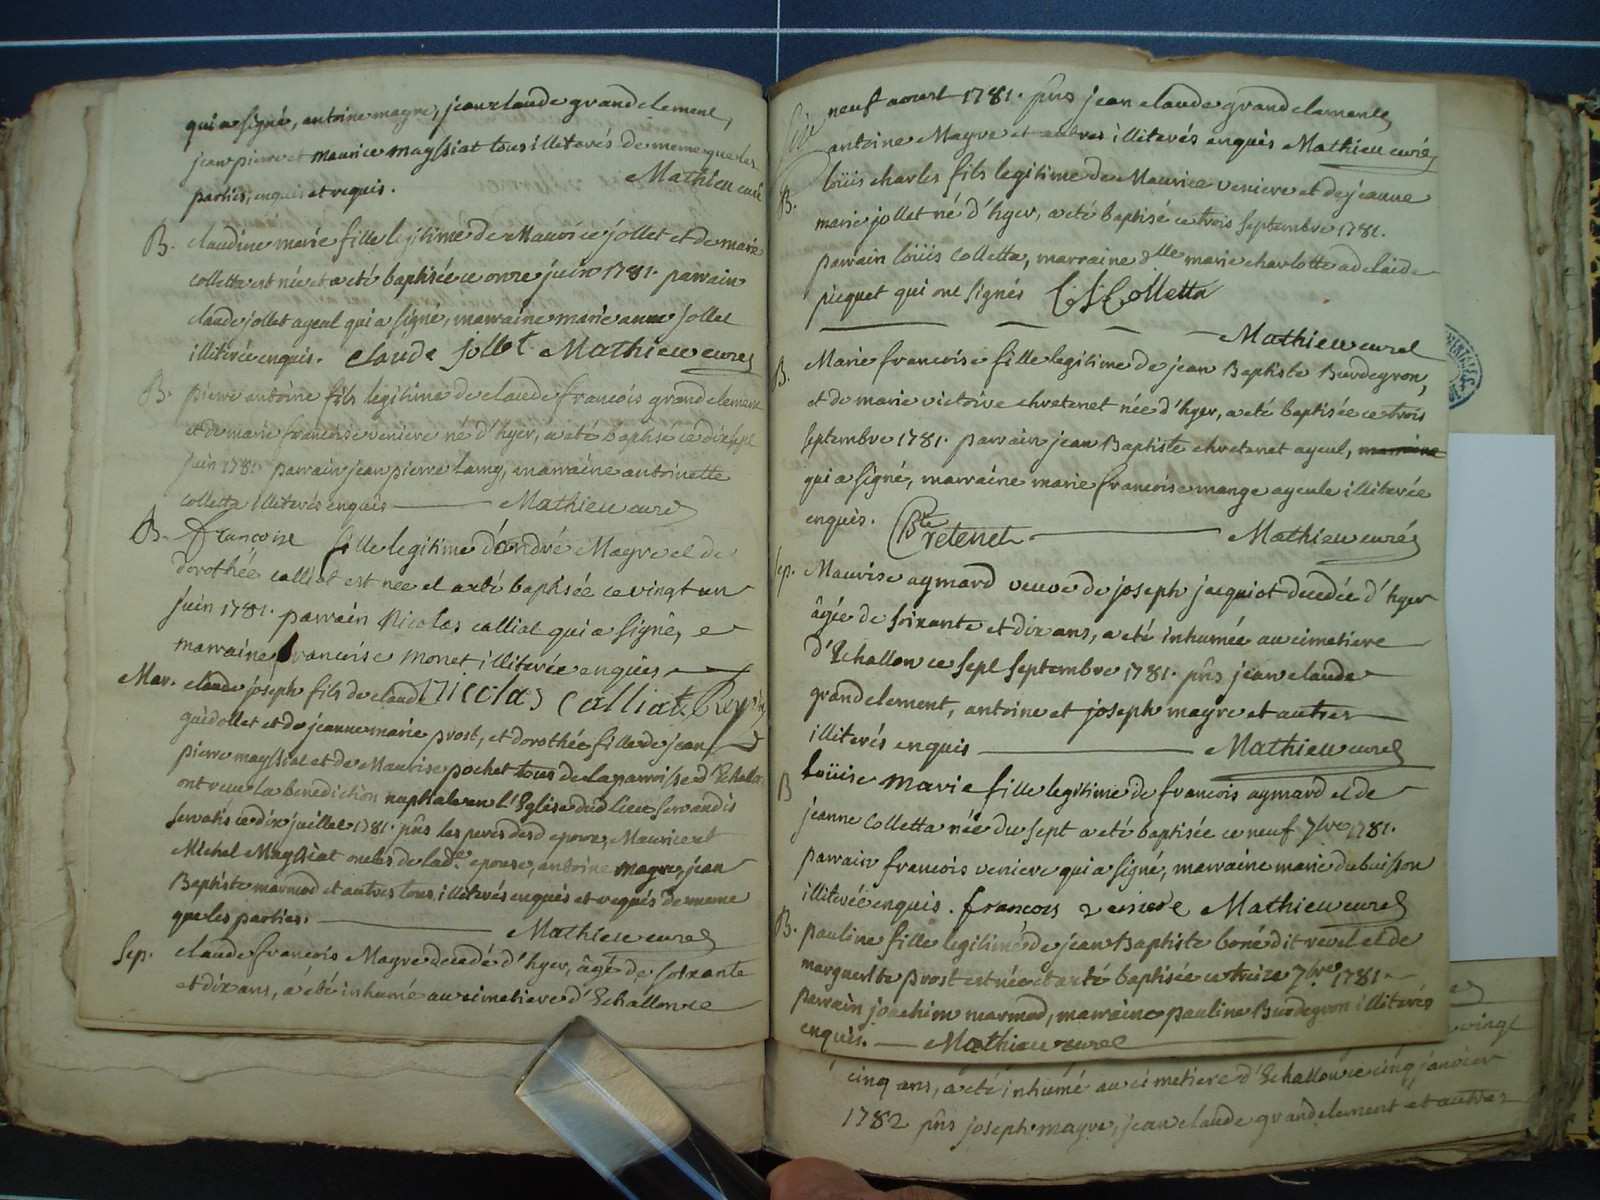 qui a signé, antoine magre, jean claude grand clement,
jean pierre et maurice maysiat tous illiterés de meme que les
parties, enquis et requis. Mathieu curé
B. claudine marie fille legitime de Maurice jollet et de marie
colletta est née et a eté baptisée ce onze juin 1781. parrain
claude jollet ayeul qui a signé, marraine marie anne jollet
illiterée enquis. claude jollet Mathieu curé
B. pierre antoine fils legitime de claude francois grand clement
et de marie francoise veniere né d'hyer, a eté baptisé ce dix sept
juin 1781. parrain jean pierre lamy, marraine antoinette
colletta illiterés enquis Mathieu curé
B. francoise fille legitime d'andré Mayre et de
dorothée calliat est nee et a eté baptisée ce vingt un
juin 1781. parrain Nicolas calliat qui a signé, e
marraine francoise monet illiterée enquise
Mar. claude joseph fils de claude Nicolas Calliat
guidollet et de jeanne marie prost, et dorothée fille de jean
pierre maysiat et de Maurise pochet tous de la paroisse d'Echallon
ont recu la benediction nuptiale en l'Eglise dud lieu servandis
servatis ce dix juillet 1781. pñs les peres desd epoux, Maurice et
Michel Maysiat oncles de lad.e epouse, antoine magre, jean
Baptiste marmod et autres tous illiterés enquis et requis de meme
que les parties. Mathieu curé
Sep. claude francois Mayre decedé d'hyer, âgé de soixante
et dix ans, a eté inhumé au cimetiere d'Echallon ce
neuf aoust 1781. pñs jean claude grand clement,
antoine Mayre et autres illiterés enquis Mathieu curé
B. loüis charles fils legitime de Maurice veniere et de jeanne
marie jollet né d'hyer, a eté baptisé ce trois Septembre 1781.
parrain loüis Colletta, marraine dlle marie charlotte adelaide
picquet qui ont signés Colletta
Mathieu curé
B. Marie francoise fille legitime de jean Baptiste Burdeyron,
et de marie victoire chretenet née d'hyer, a eté baptisée ce trois
septembre 1781. parrain jean Baptiste chretenet ayeul, marraine
qui a signé, marraine marie francoise mange ayeule illiterée
enquis. Bte retenet Mathieu curé
Sep. Maurise aymard veuve de joseph jacquiot decedée d'hyer
âgée de soixante et dix ans, a eté inhumée au cimetiere
d'Echallon ce sept septembre 1781. pñs jean claude
grand clement, antoine et joseph mayre et autres
illiterés enquis Mathieu curé
B loüise Marie fille legitime de francois aymard et de
jeanne Colletta née du sept a eté baptisée ce neuf 7bre 1781.
parrain francois veniere qui a signé, marraine marie dubuisson
illiterée enquis. francois veniere Mathieu curé
B. pauline fille legitime de jean Baptiste benédit revel et de
marguerite prost est née et a eté baptisée ce treize 7bre 1781
parrain joachim marmod, marraine pauline Burdeyron illiterés
enquis. Mathieu curé
vingt
cinq ans, a eté inhumé au cimetiere d'Echallon ce cinq janvier
1782 pñs joseph mayre, jean claude grand clement et autres